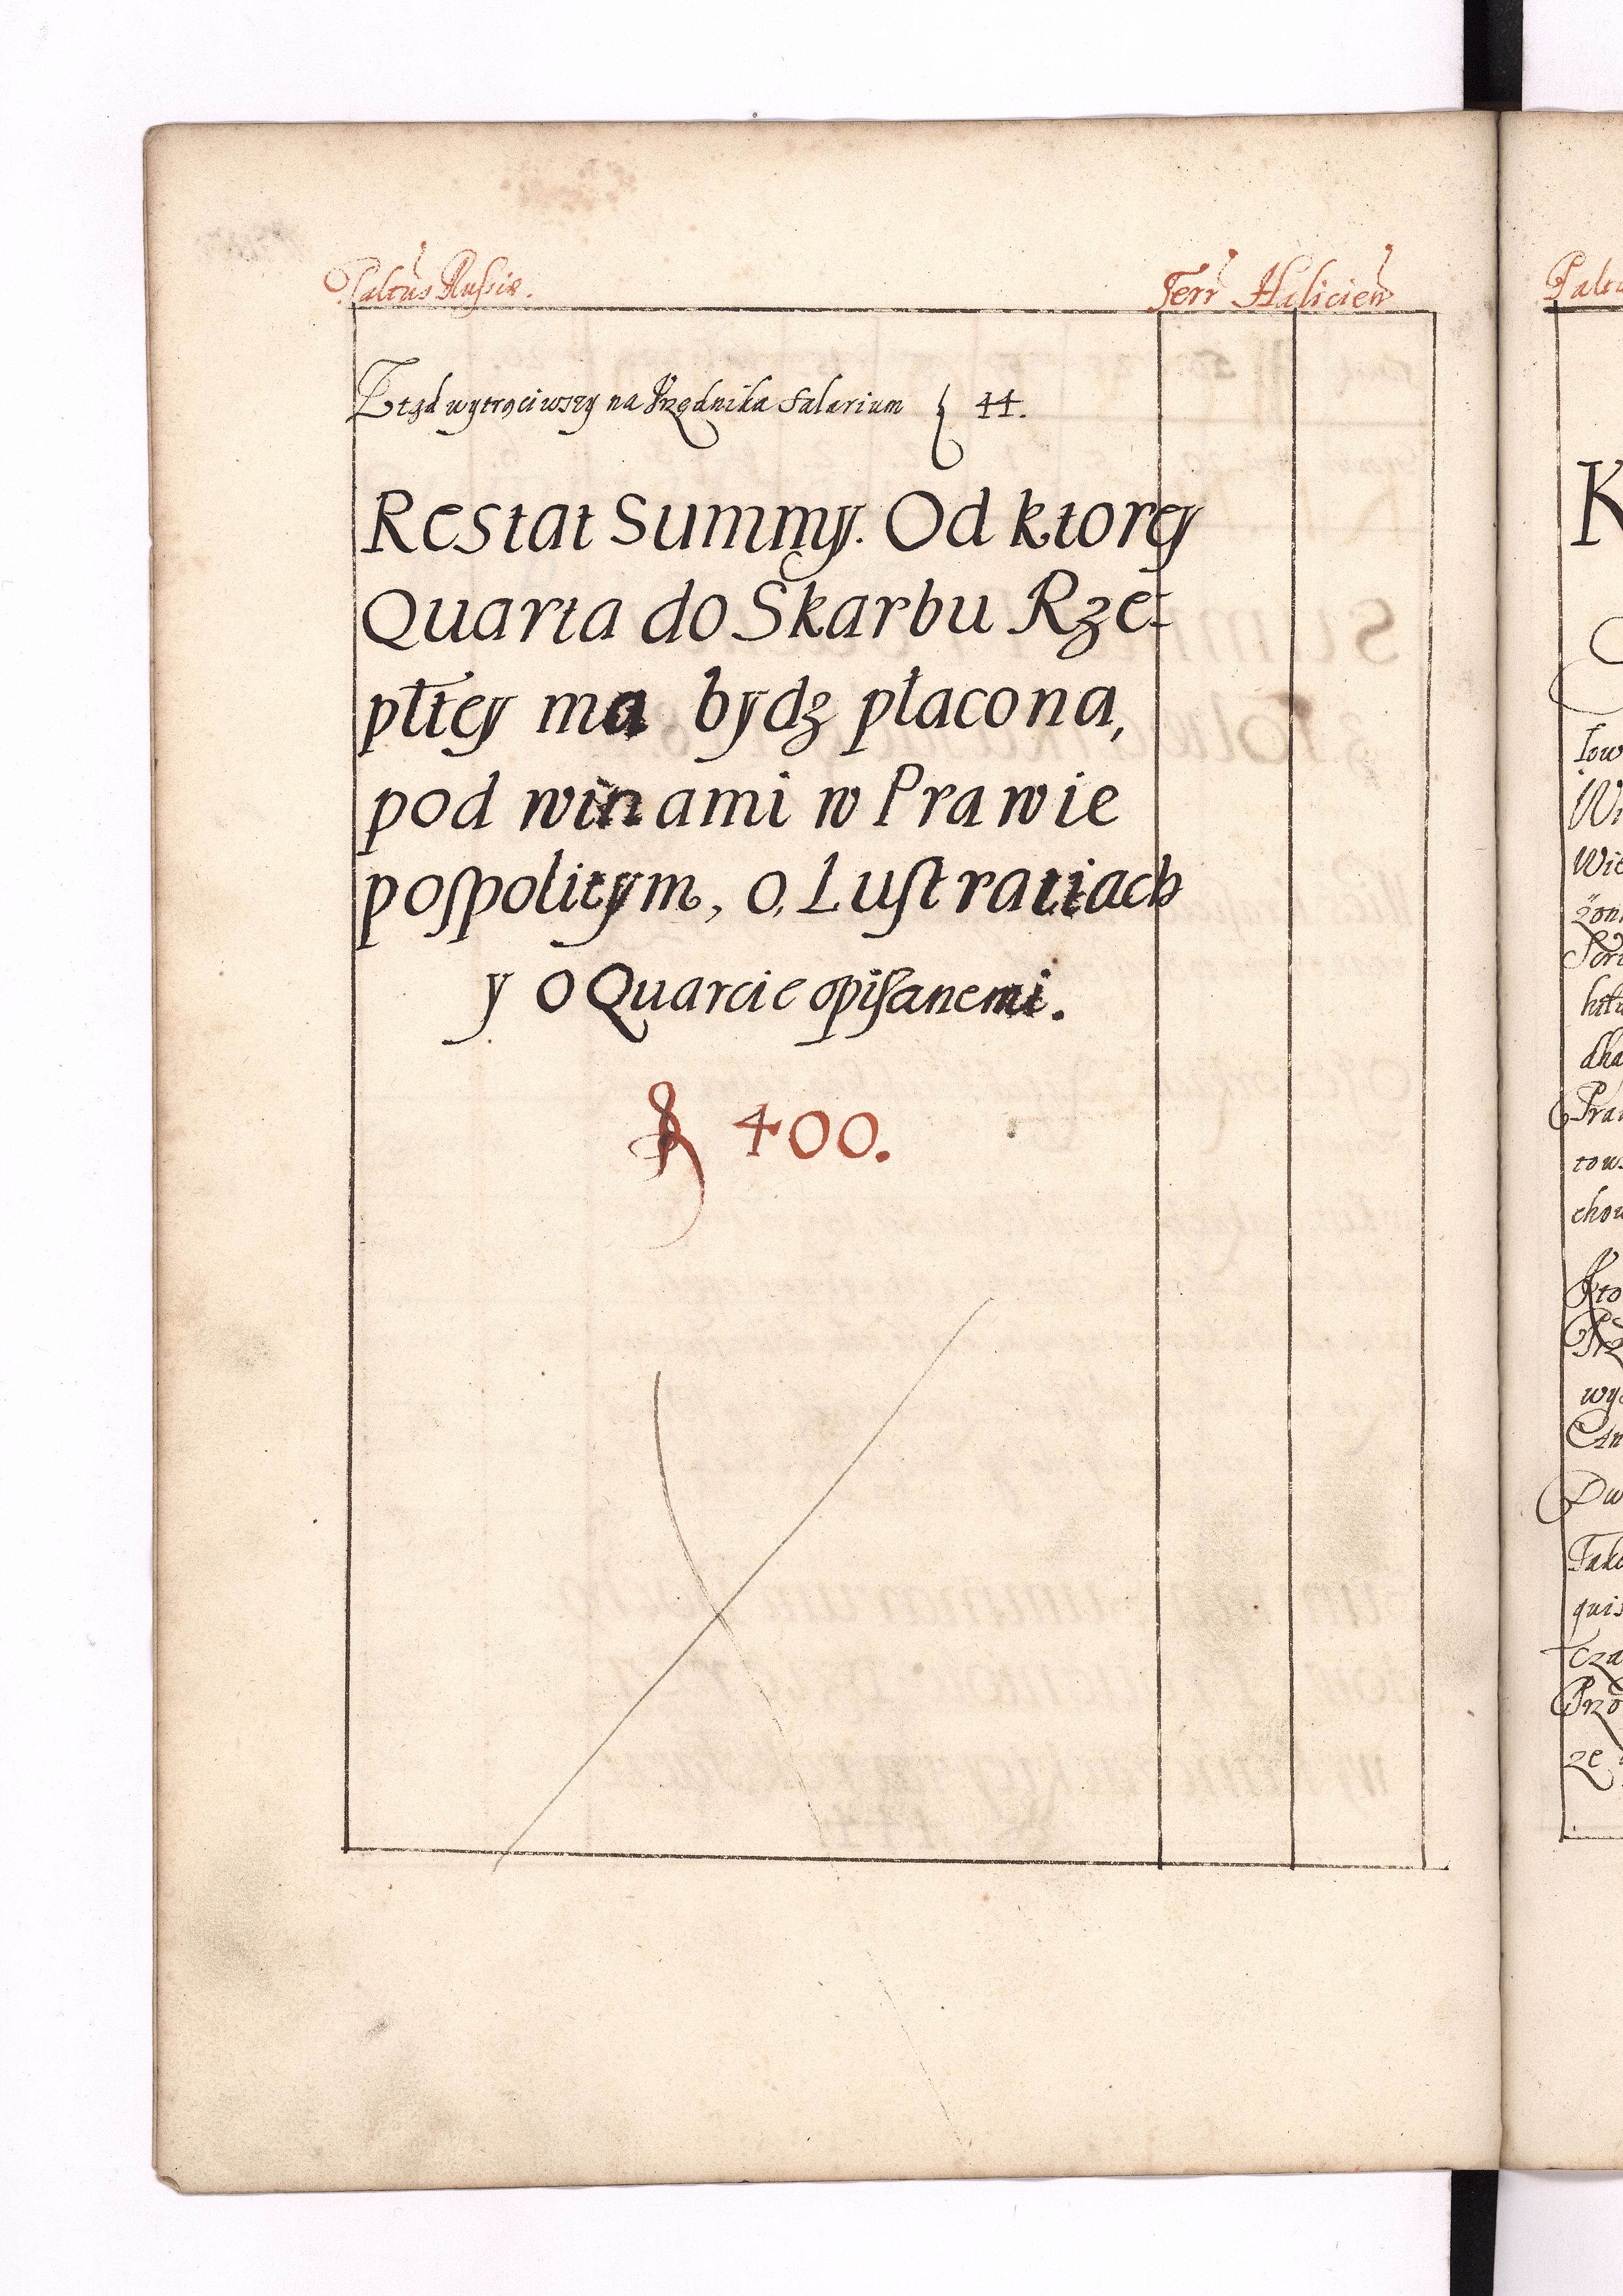 Paltus Russiæ. Terr Halicien
Ztąd wytrąciwszy na Vrzędnika Salarium f 44.
Restat Summy. Od ktorey
Quarta do Skarbu Rze-
pltey ma bydz płacona,
pod winami w Prawie
pospolitym, o, Lustratiach
y o Quarcie opisanemi.
f 400.